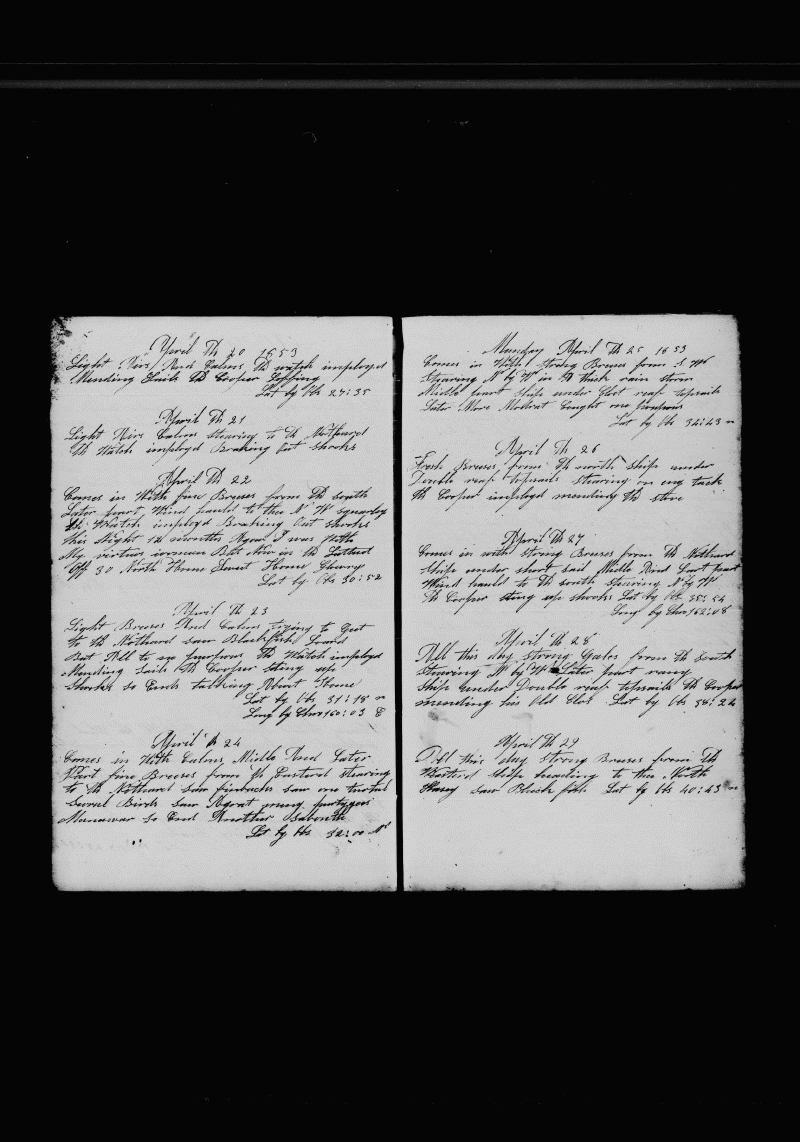 April Th 20 1853
Light Airs And Calms Th watch imployed
Mending Sails Th Cooper
Lat by Obs 27:35
April Th 21
Light Airs Calm stearing to th Nothward
Th Watch imployd Braking Out Shooks
April Th 22
Comes in With fine Breeses from Th south
Later part Wind hauld to thee N W squawly
Th Watch imployd Braking Out shooks
this Night 12 months Agow I was With
My But Now in th Latitud
Off 30 North Home Sweet Home
Lat by Obs 30:52
April Th 23
Light Breeses And Calms trying to Geet
to th Nothard saw Blackfish Loard
But All to no purpous Th Watch imployd
Mending Sails Th Cooper Sting up
Shooks so Ends talking About Home
Lat by Obs 31:18 n
Long by Chro 160:03 E
April Th 24
Comes in With Calms Middle And Later
Part fine Breeses from th Eastard stearing
to th Nothard saw finbacks saw one turtul
Several Birds Saw Agrat meny
Manawar so End Another Sabouth
Lat by Obs 32:00 Nd
Munday April Th 25 1853
Comes in With Strong Breeses from S Wd
Stearing N by W in A thick rain storm
Middle part Ships under Clost reap topsails
Later More Modrat Cought one
Lat by Obs 34:43 n
April Th 26
Fresh Breeses from Th north ships under
Double reap topsails stearing on eny tack
th Cooper imployd mending th
April Th 27
Comes in with strong Breeses from Th Nothard
Ships under short sail Middle And Last part
Wind hauld to Th south Stearing N by W
Th Cooper Sting up shooks Lat by Obs 35:54
Long by Chro 162:08
April Th 28
All this day strong Gales from th South
Stearing N by W Later part
Ships under Double reap topsails Th Cooper
mending his Old Lat by Obs 38:24
April Th 29
All this day Strong Breeses from Th
Westard ships heading to thee North
saw Black fish Lat by Obs 40:43 n